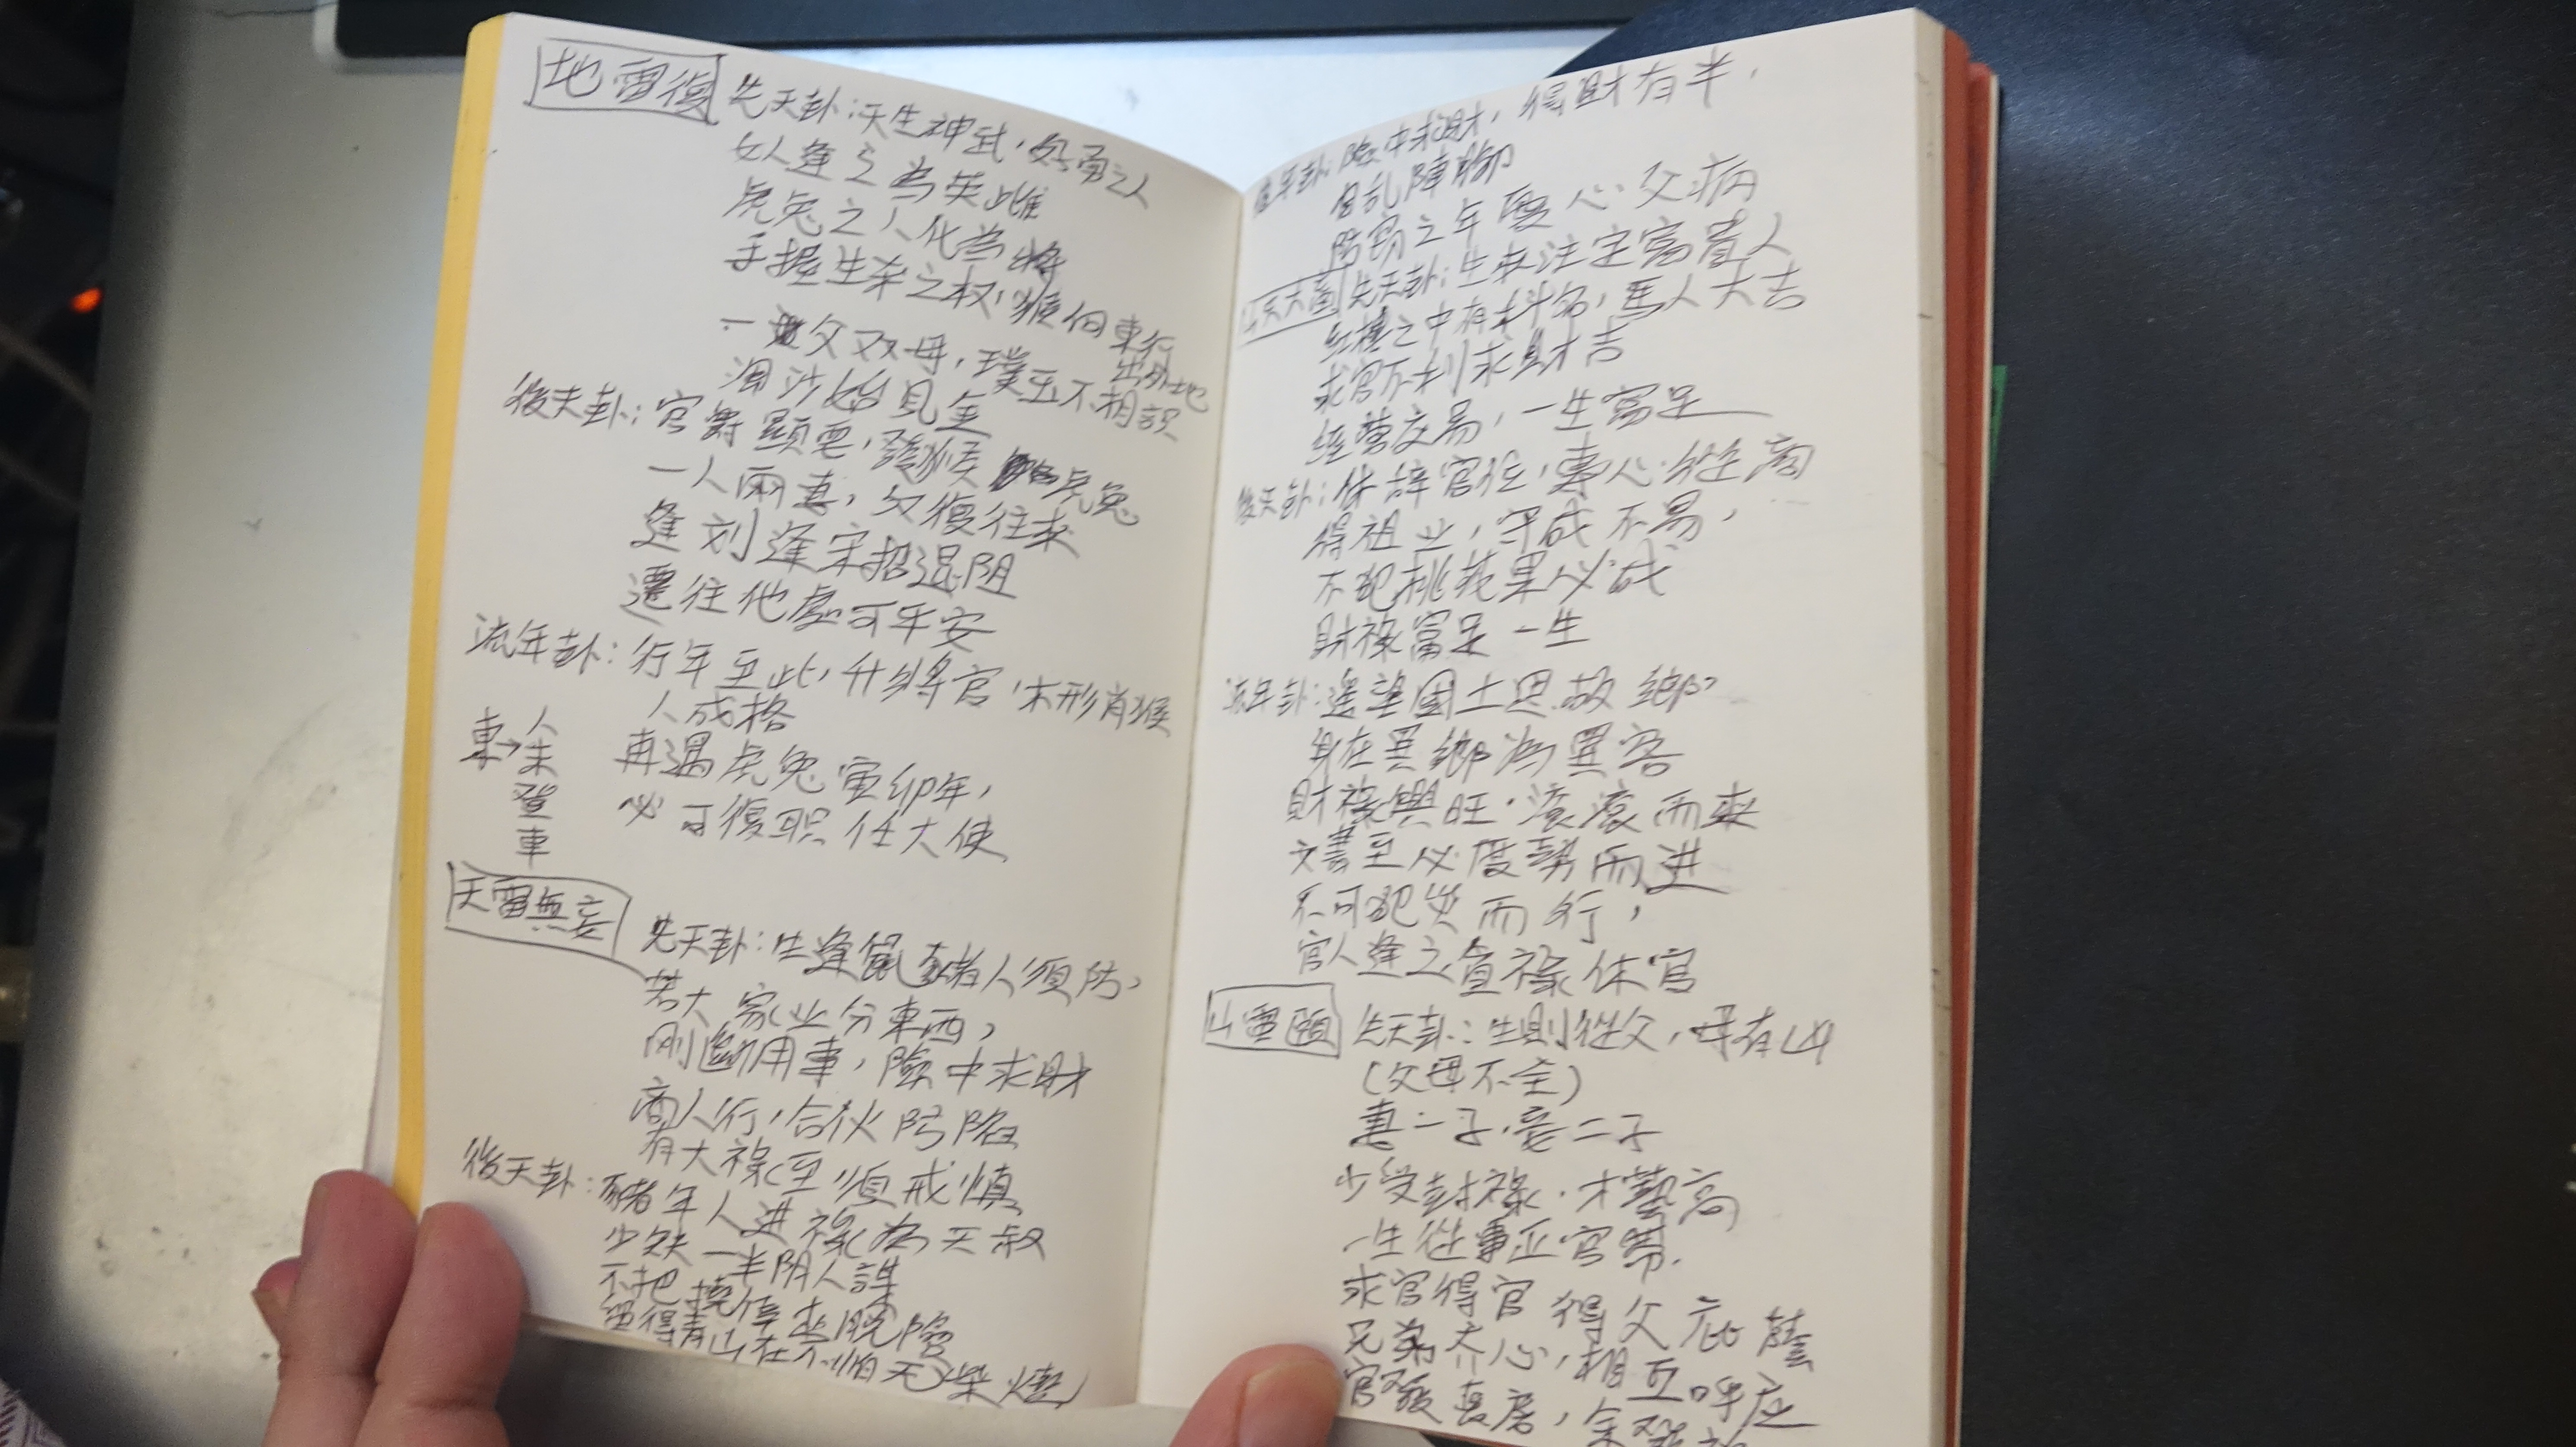 地雷復
先天卦：天生神武，好勇之人
女人逢之為英雌
虎兔之人化為將
手握生杀之权，猴向東行
出外地
一父双母，璞玉不相識
淘沙始見金
後天卦：官爵顯要，發候虎兔
一人兩妻，欠復往来
逢刘逢宋招温阴
遷往他處可平安
流年卦：行年至此，升將官，木形肖猴
人成格
再遇虎兔寅卯年，
必可復职任大使
車→人未登車
天雷無妄
先天卦：生逢鼠豬人須防，
若大家业分東西，
剛斷用事，險中求財
商人行，合伙防陷
有大祿至須戒慎
後天卦：豬年人进祿為天叔
少缺一半阴人謀
不把
留得青山在不怕无柴燒
流年卦：險中求財，得財有半，
自乱陣腳
防有之年 心父病
先天卦：生来注定富貴人
之中有科名，馬人大吉
求官不利求財吉
經营交易，一生富足
後天卦：休辞官任，專心從商
得祖业，守成不易，
不犯桃花果必成
財祿富足一生
流年卦：遥望國土思故鄉
身在異鄉為異客
財祿興旺，滾滾而来
文書至必度勢而进
不可犯 而行，
官人逢之宜祿休官
山雷頤
先天卦：生則從父，母有凶
（父母不全）
妻二子，妾二子
少受封祿，才藝高
一生從事正官爵
求官得官 得父庇蔭
兄弟大心，相互呼应
官